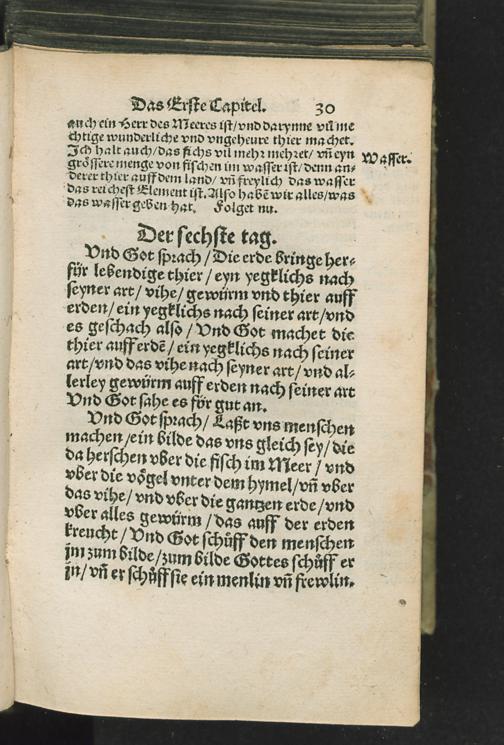 Das Erste Capitel. 30
auch ein Herr des Meeres ist/vnd darynne vil me
chtige wunderliche vnd vngeheure thier machet.
Ich halt auch/das sichs vil mehr mehret/vñ eyn
Wasser.
grössere menge von fischen im wasser ist/denn an-
derer thier auff dem land/vñ freylich das wasser
das reichest Element ist. Also habē wir alles/was
das wasser geben hat. Folget nu.
Der sechste tag.
Vnd Got sprach/Die erde bringe her-
für lebendige thier/eyn yegklichs nach
seyner art/vihe/gewürm vnd thier auff
erden/ein yegklichs nach seiner art/vnd
es geschach also/Vnd Got machet die
thier auff erdē/ein yegklichs nach seiner
art/vnd das vihe nach seyner art/vnd al-
lerley gewürm auff erden nach seiner art
Vnd Got sahe es för gut an.
Vnd Got sprach/Laßt vns menschen
machen/ein bilde das vns gleich sey/die
da herschen vber die fisch im Meer/vnd
vber die vögel vnter dem hymel/vñ vber
das vihe/vnd vber die gantzen erde/vnd
vber alles gewürm/das auff der erden
kreucht/Vnd Got schůff den menschen
jm zum bilde/zum bilde Gottes schůff er
jn/vñ er schůff sie ein menlin vñ frewlin.